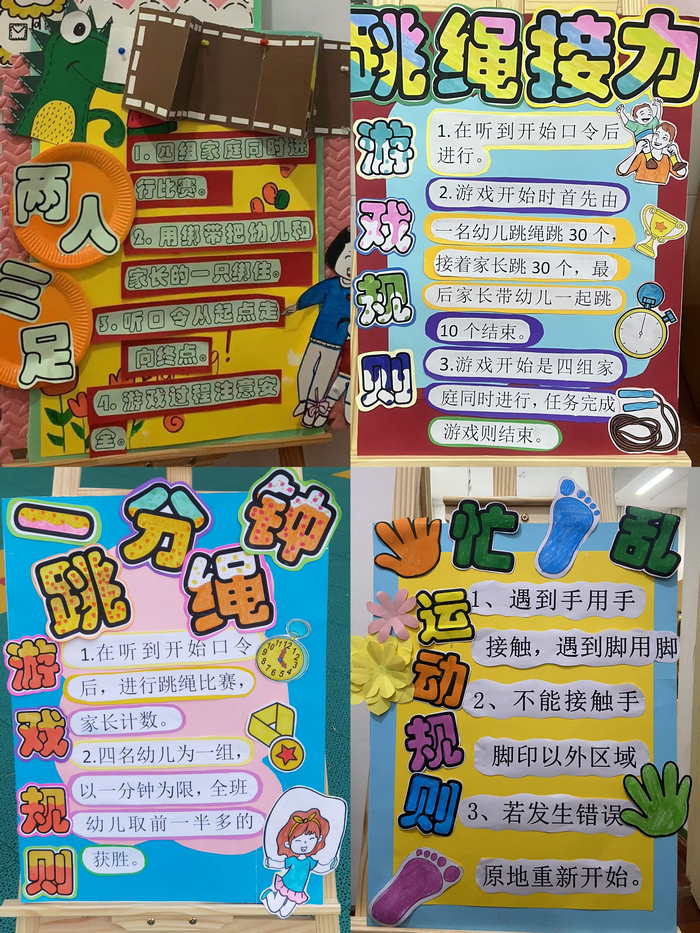 两人
三足
1. 四组家庭同时进
行比赛。
2. 用绑带把幼儿和
家长的一只绑住。
3. 听口令从起点走
向终点。
4. 游戏过程注意安
全。
跳绳接力
游戏规则
1.在听到开始口令后
进行。
2.游戏开始时首先由
一名幼儿跳绳跳 30 个，
接着家长跳 30 个，最
后家长带幼儿一起跳
10 个结束。
3.游戏开始是四组家
庭同时进行，任务完成
游戏则结束。
一分钟
跳绳
游戏规则
1.在听到开始口令
后，进行跳绳比赛，
家长计数。
2.四名幼儿为一组，
以一分钟为限，全班
幼儿取前一半多的
获胜。
忙乱
运动规则
1、遇到手用手
接触，遇到脚用脚
2、不能接触手
脚印以外区域
3、若发生错误
原地重新开始。